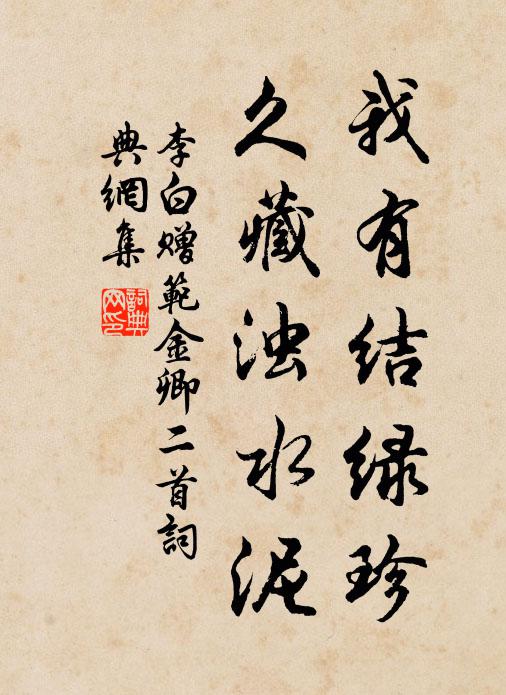 我有结绿珍
久藏浊水泥
李白赠範金卿二首詞
典網集
詞典
网印